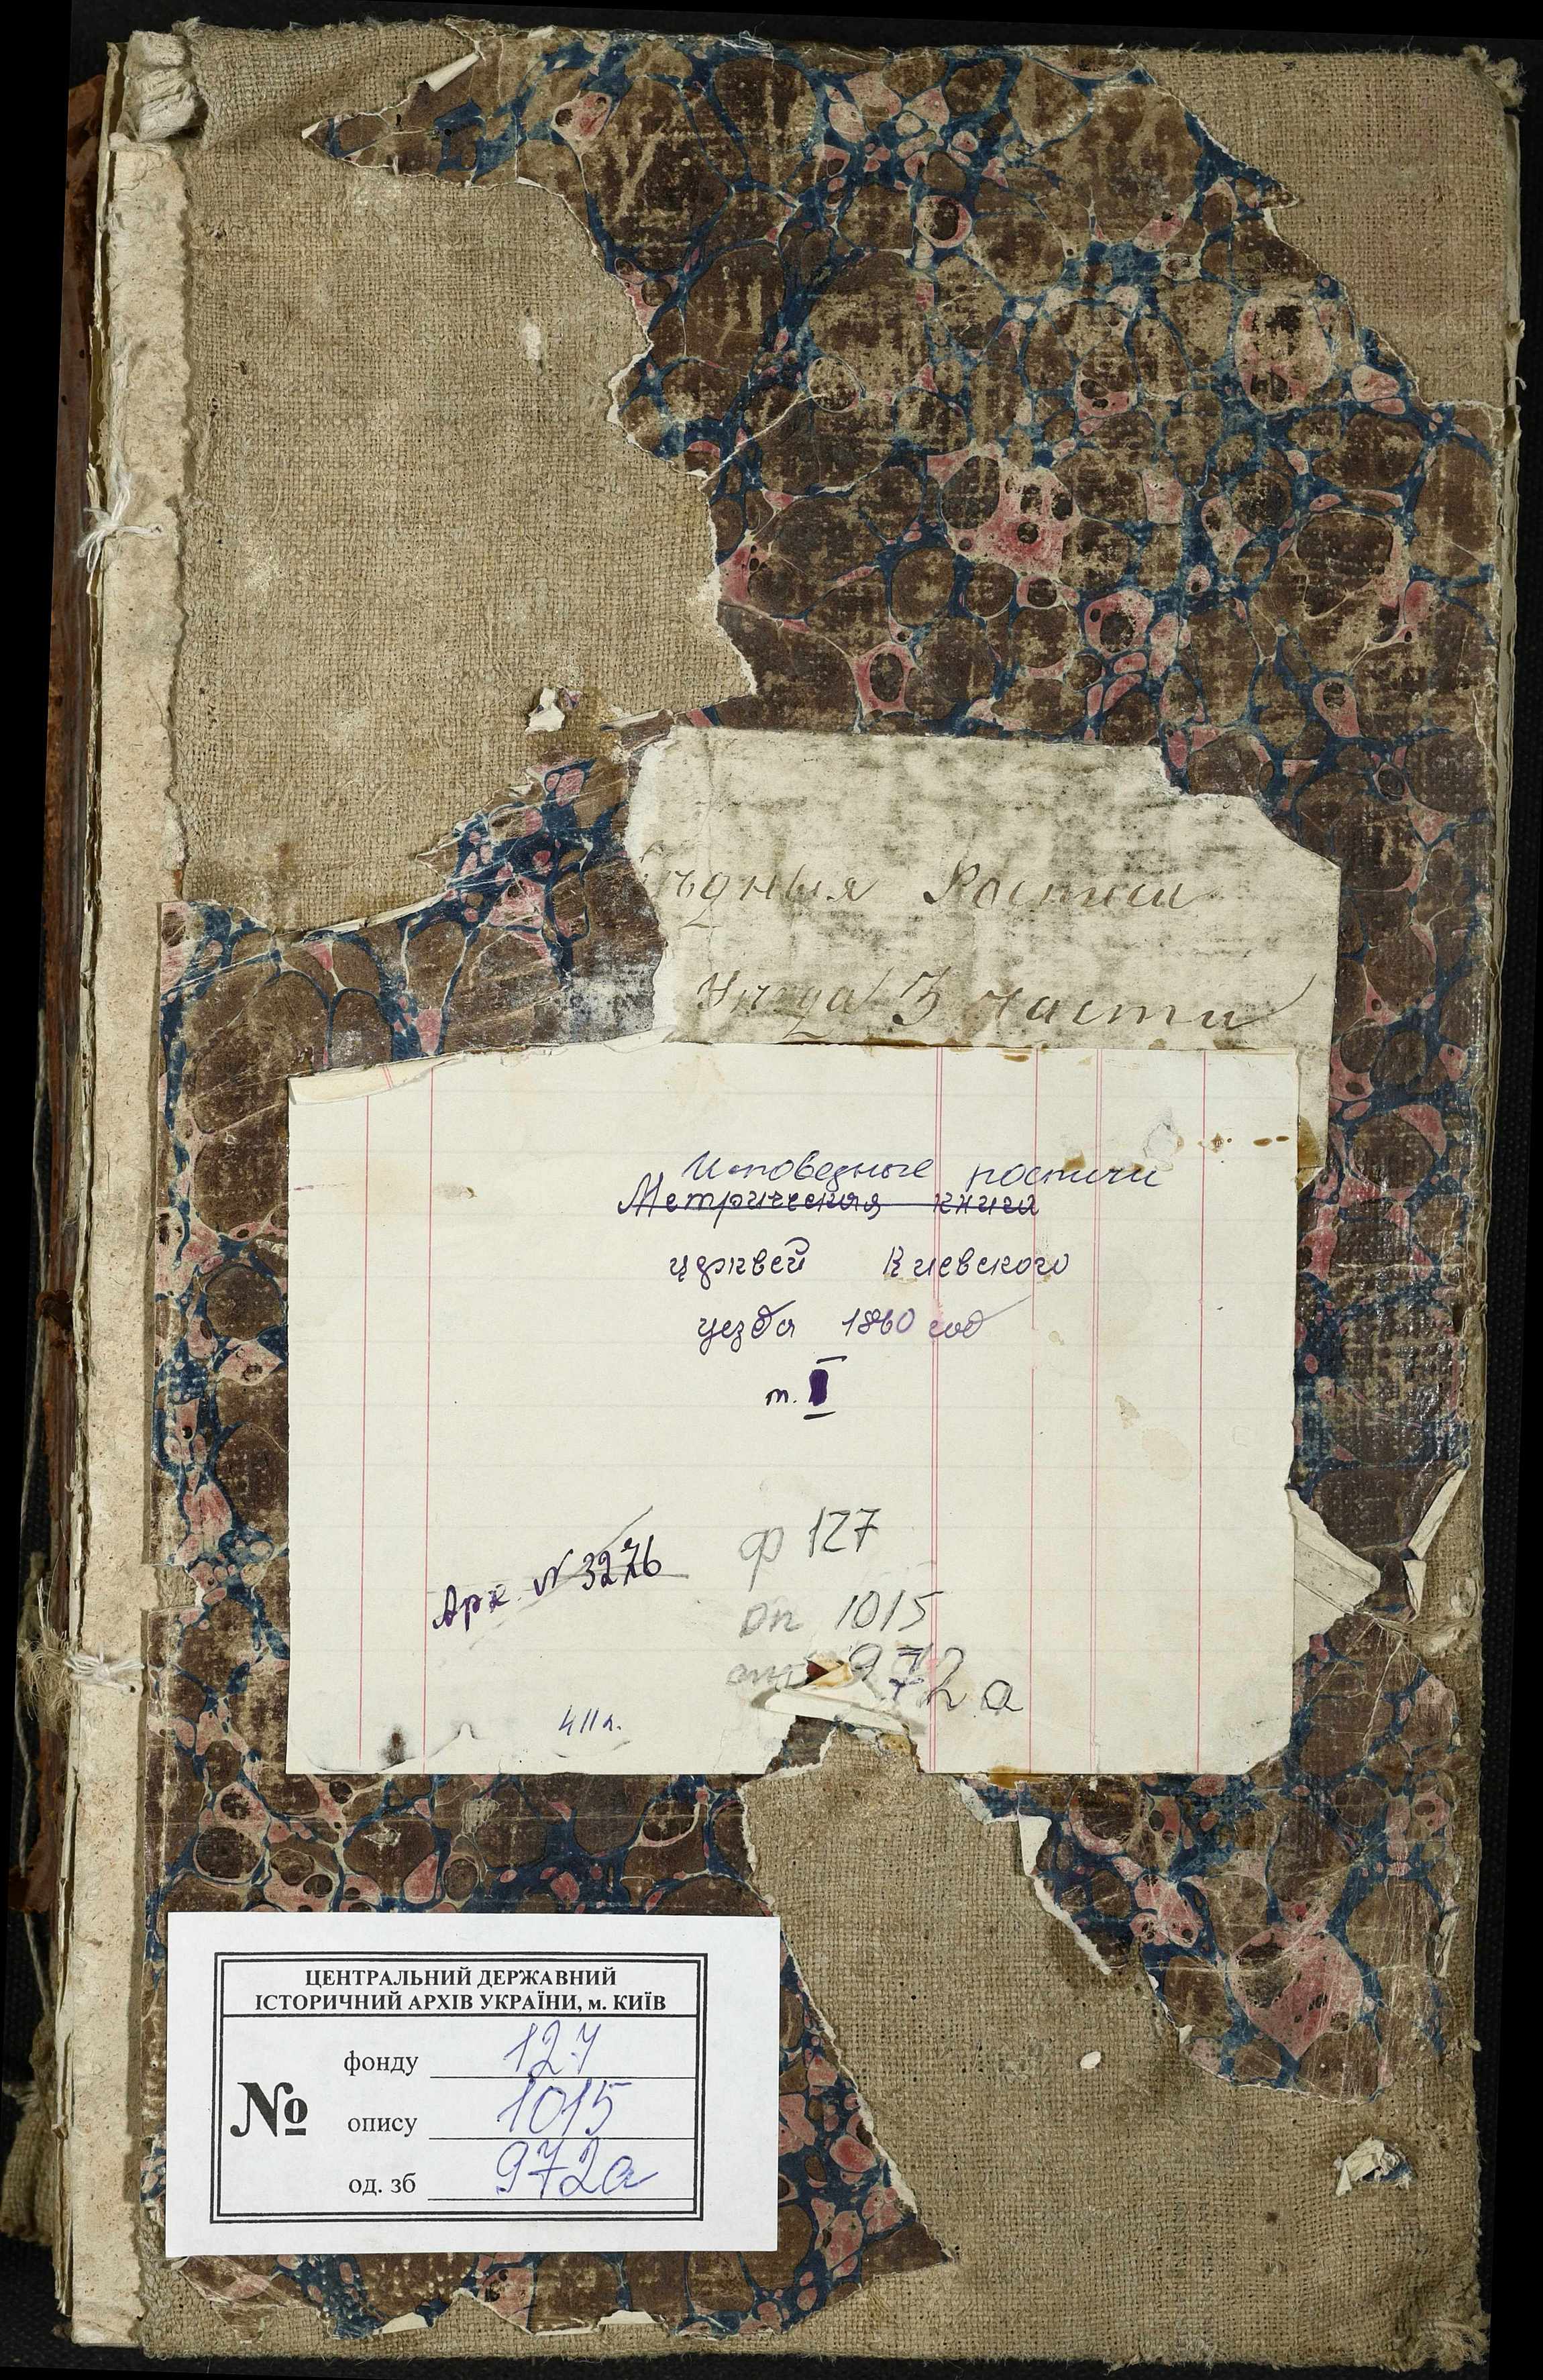 ѣдныя Росписи
Уѣзда 3 части
Исповедные росписи
Метрическия книги
церквей Киевского
уезда 1860 год
т. I
Арх. № 3276
ф 127
оп 1015
972 а
411 л.
ЦЕНТРАЛЬНИЙ ДЕРЖАВНИЙ
ІСТОРИЧНИЙ АРХІВ УКРАЇНИ, м. КИЇВ
№
фонду 127
опису 1015
од. зб 972а